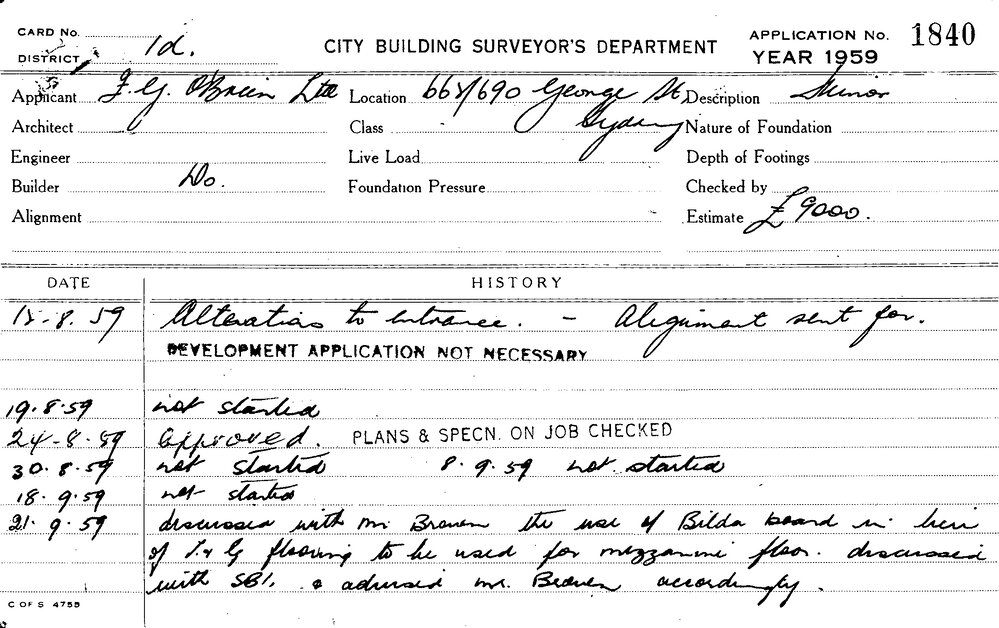 CARD No.
DISTRICT 1d.
CITY BUILDING SURVEYOR'S DEPARTMENT
APPLICATION No. 1840
YEAR 1959
Applicant F. G. O'Brien Ltd Location 668/690 George St, Sydney Description Minor
Architect Class Nature of Foundation
Engineer Live Load Depth of Footings
Builder Do. Foundation Pressure Checked by
Alignment Estimate £9000.
DATE HISTORY
18-8.59 Alterations to entrance. - Alignment sent for.
DEVELOPMENT APPLICATION NOT NECESSARY
19.8.59 not started
24-8-59 Approved. PLANS & SPECN. ON JOB CHECKED
30.8.59 not started 8.9.59 not started
18.9.59 not started
21.9.59 discussed with Mr. Brown the use of Bilda board in lieu
of T & G flooring to be used for mezzanine floor. discussed
with SBI. & advised Mr. Brown accordingly.
C OF S 4755